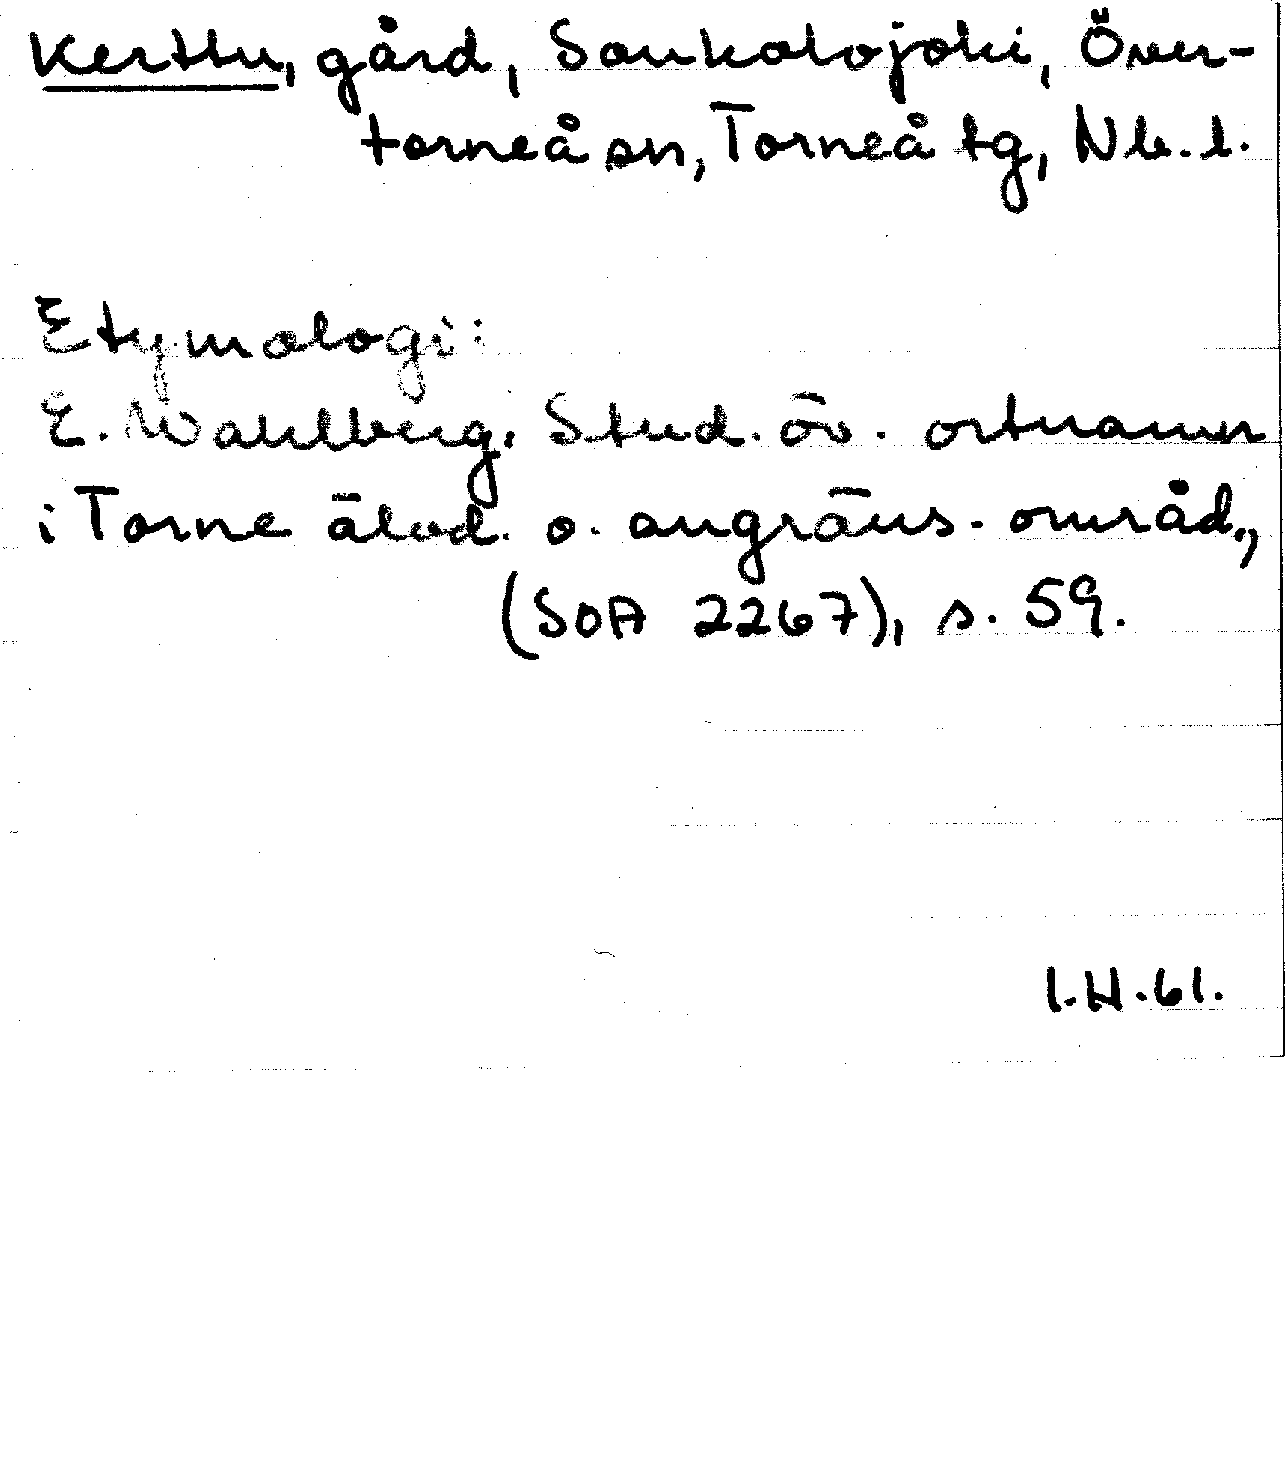 Kerttu, gård, Soukolojoki, Över-
torneå sn, Torneå tg, Nb. l.
Etymologi:
E. Wahlberg, Stud. öv. ortnamn
i Torne älvd. o. angräns. områd.,
(SOA 2267), s. 59.
I.H.61.